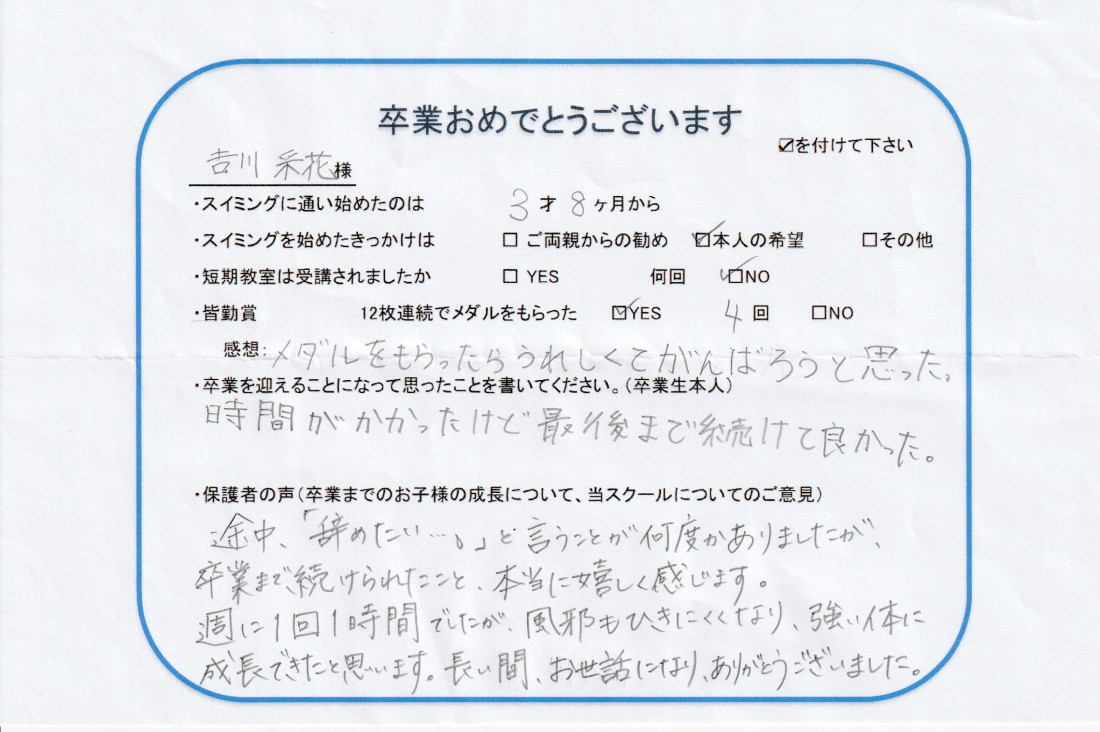 卒業おめでとうございます
☑を付けて下さい
吉川 采花様
・スイミングに通い始めたのは 3 才 8 ヶ月から
・スイミングを始めたきっかけは □ ご両親からの勧め ☑本人の希望 □その他
・短期教室は受講されましたか □ YES 何回 ☑NO
・皆勤賞 12枚連続でメダルをもらった ☑YES 4 回 □NO
感想:メダルをもらったらうれしくてがんばろうと思った。
・卒業を迎えることになって思ったことを書いてください。(卒業生本人)
時間がかかったけど最後まで続けて良かった。
・保護者の声(卒業までのお子様の成長について、当スクールについてのご意見)
途中、「辞めたい…。」と言うことが何度かありましたが、
卒業まで続けられたこと、本当に嬉しく感じます。
週に1回1時間でしたが、風邪もひきにくくなり、強い体に
成長できたと思います。長い間、お世話になり、ありがとうございました。